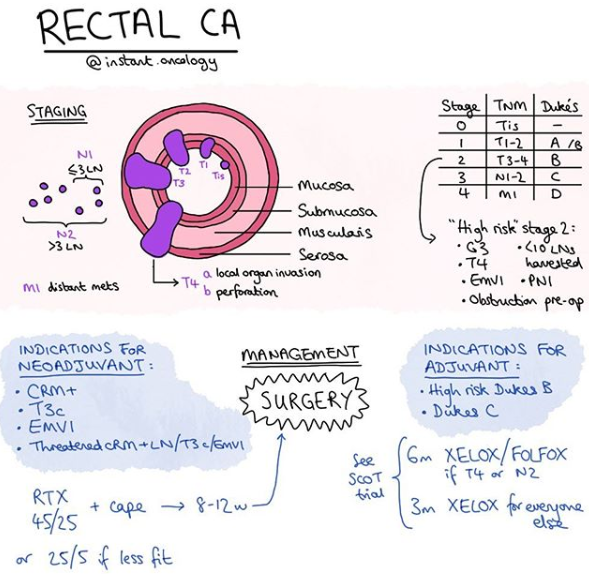 RECTAL CA
@instant.oncology
STAGING
N1
≤3LN
N2
>3LN
M1 distant mets
T3
T2
T1
Tis
Mucosa
Submucosa
Muscularis
Serosa
T4 a local organ invasion
b perforation
Stage TNM Duke's
0 Tis –
1 T1-2 A/B
2 T3-4 B
3 N1-2 C
4 M1 D
"High risk" stage 2:
• G3
• T4
• EMVI
• <10 LNs
harvested
• PNI
• Obstruction pre-op
INDICATIONS FOR
NEOADJUVANT:
• CRM+
• T3c
• EMVI
• Threatened CRM+LN/T3c/EMVI
RTX
45/25
+ cape → 8-12w
or 25/5 if less fit
MANAGEMENT
SURGERY
INDICATIONS FOR
ADJUVANT:
• High risk Dukes B
• Dukes C
See
SCOT
trial
6m XELOX/FOLFOX
if T4 or N2
3m XELOX for everyone
else